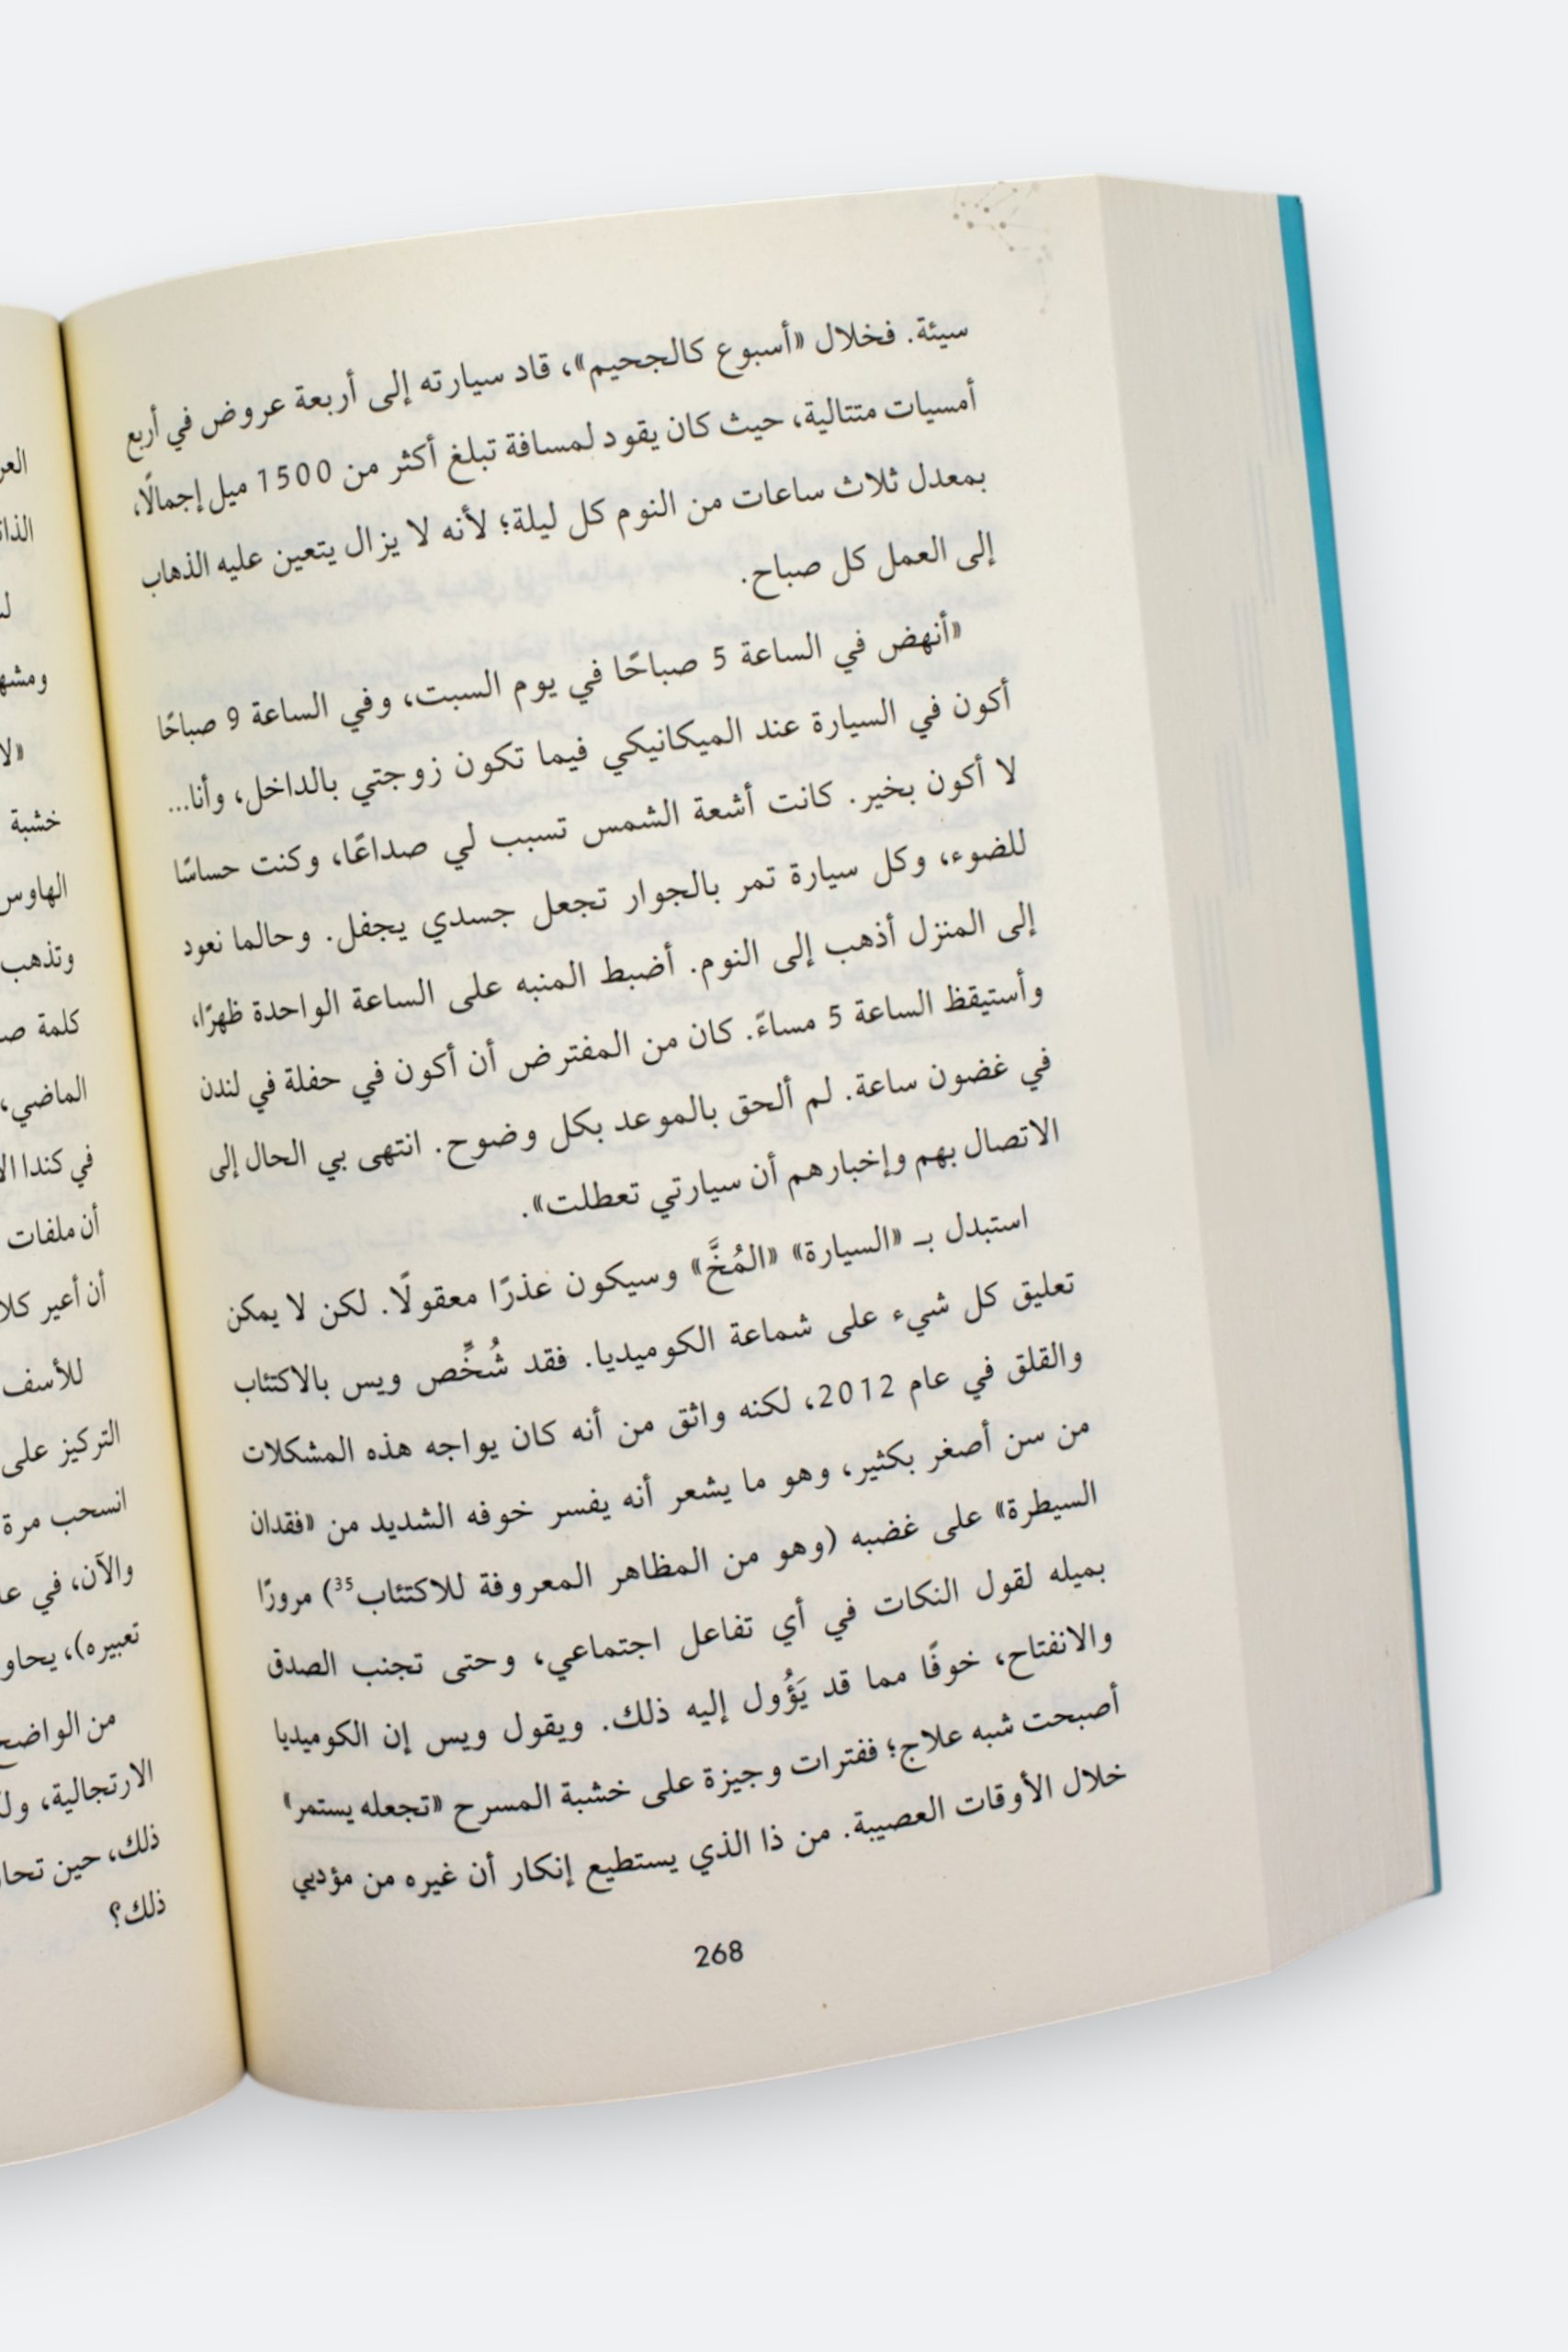 سيئة. فخلال «أسبوع كالجحيم»، قاد سيارته إلى أربعة عروض في أربع
أمسيات متتالية، حيث كان يقود لمسافة تبلغ أكثر من 1500 ميل إجمالًا،
بمعدل ثلاث ساعات من النوم كل ليلة؛ لأنه لا يزال يتعين عليه الذهاب
إلى العمل كل صباح.
«أنهض في الساعة 5 صباحًا في يوم السبت، وفي الساعة 9 صباحًا
أكون في السيارة عند الميكانيكي فيما تكون زوجتي بالداخل، وأنا...
لا أكون بخير. كانت أشعة الشمس تسبب لي صداعًا، وكنت حساسًا
للضوء، وكل سيارة تمر بالجوار تجعل جسدي يجفل. وحالما نعود
إلى المنزل أذهب إلى النوم. أضبط المنبه على الساعة الواحدة ظهرًا،
وأستيقظ الساعة 5 مساءً. كان من المفترض أن أكون في حفلة في لندن
في غضون ساعة. لم ألحق بالموعد بكل وضوح. انتهى بي الحال إلى
الاتصال بهم وإخبارهم أن سيارتي تعطلت».
استبدل بـ «السيارة» «المُخَّ» وسيكون عذرًا معقولًا. لكن لا يمكن
تعليق كل شيء على شماعة الكوميديا. فقد شُخِّص ويس بالاكتئاب
والقلق في عام 2012، لكنه واثق من أنه كان يواجه هذه المشكلات
من سن أصغر بكثير، وهو ما يشعر أنه يفسر خوفه الشديد من «فقدان
السيطرة» على غضبه (وهو من المظاهر المعروفة للاكتئاب³⁵) مرورًا
بميله لقول النكات في أي تفاعل اجتماعي، وحتى تجنب الصدق
والانفتاح، خوفًا مما قد يَؤُول إليه ذلك. ويقول ويس إن الكوميديا
أصبحت شبه علاج؛ ففترات وجيزة على خشبة المسرح «تجعله يستمر»
خلال الأوقات العصيبة. من ذا الذي يستطيع إنكار أن غيره من مؤديي
268
ومشه
«لا
خشبة
الهاوس
وتذهب
كلمة
الماضي،
في كندا
أن ملفات
أن أعير
للأسف
التركيز على
انسحب مرة
والآن، في
تعبيره)،
من
الارتجالية،
ذلك، حين
ذلك؟